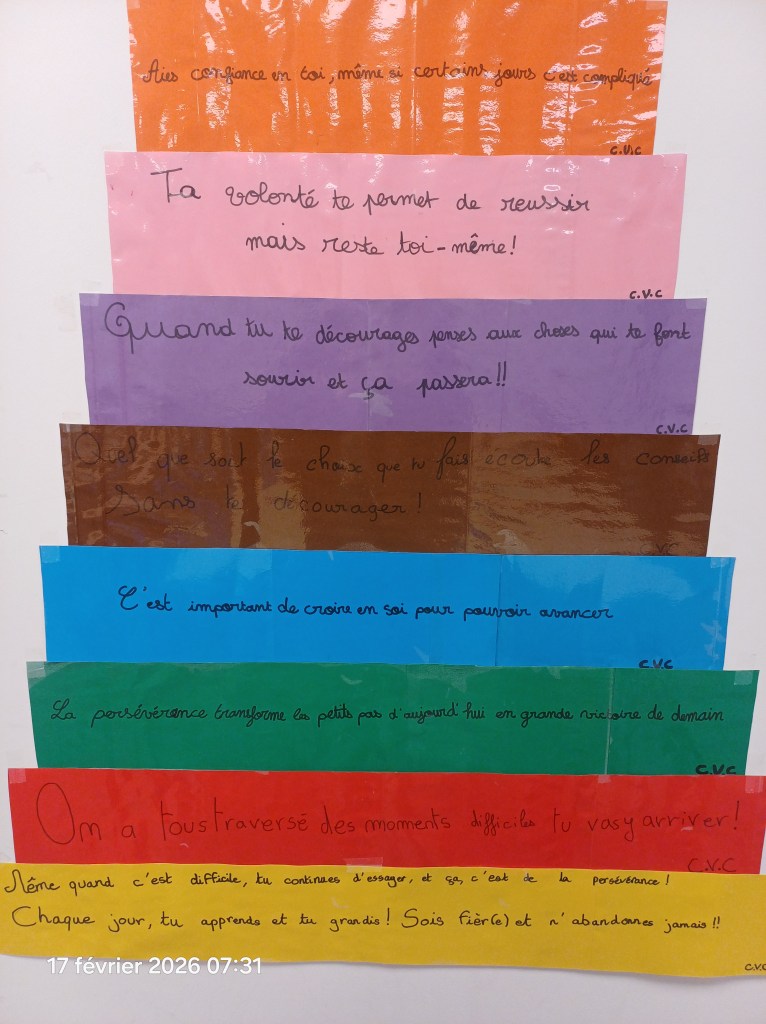 Aies confiance en toi, même si certains jours c'est compliqué
C.V.C
Ta volonté te permet de reussir
mais reste toi-même!
C.V.C
Quand tu te décourages penses aux choses qui te font
sourir et ça passera!!
C.V.C
Quel que soit le choix que tu fais écoute les conseils
Sans te décourager!
C.V.C
C'est important de croire en soi pour pouvoir avancer
C.V.C
La persévérence transforme les petits pas d'aujourd'hui en grande victoire de demain
C.V.C
On a tous traversé des moments difficiles tu vas y arriver!
C.V.C
Même quand c'est difficile, tu continues d'essayer, et ça, c'est de la persévérance!
Chaque jour, tu apprends et tu grandis! Sois fièr(e) et n'abandonnes jamais!!
C.V.C
17 février 2026 07:31